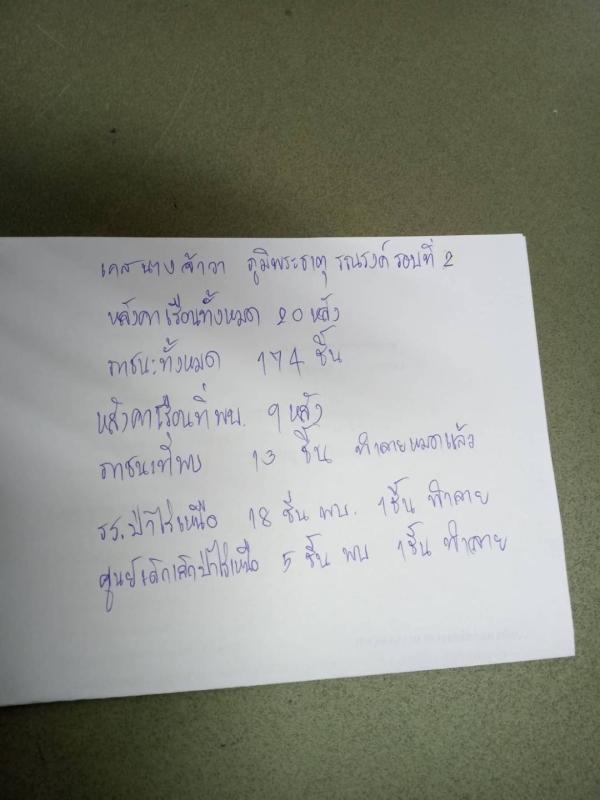 เคส นาง จ๋าวา ภูมิพระธาตุ รณรงค์ รอบที่ 2
หลังคาเรือนทั้งหมด 20 หลัง
ภาชนะทั้งหมด 174 ชิ้น
หลังคาเรือนที่พบ. 9 หลัง
ภาชนะที่พบ 13 ชิ้น ทำลายหมดแล้ว
รร.ป่าไร่เหนือ 18 ชิ้น พบ. 1ชิ้น ทำลาย
ศูนย์เด็กเล็กป่าไร่เหนือ 5 ชิ้น พบ 1ชิ้น ทำลาย